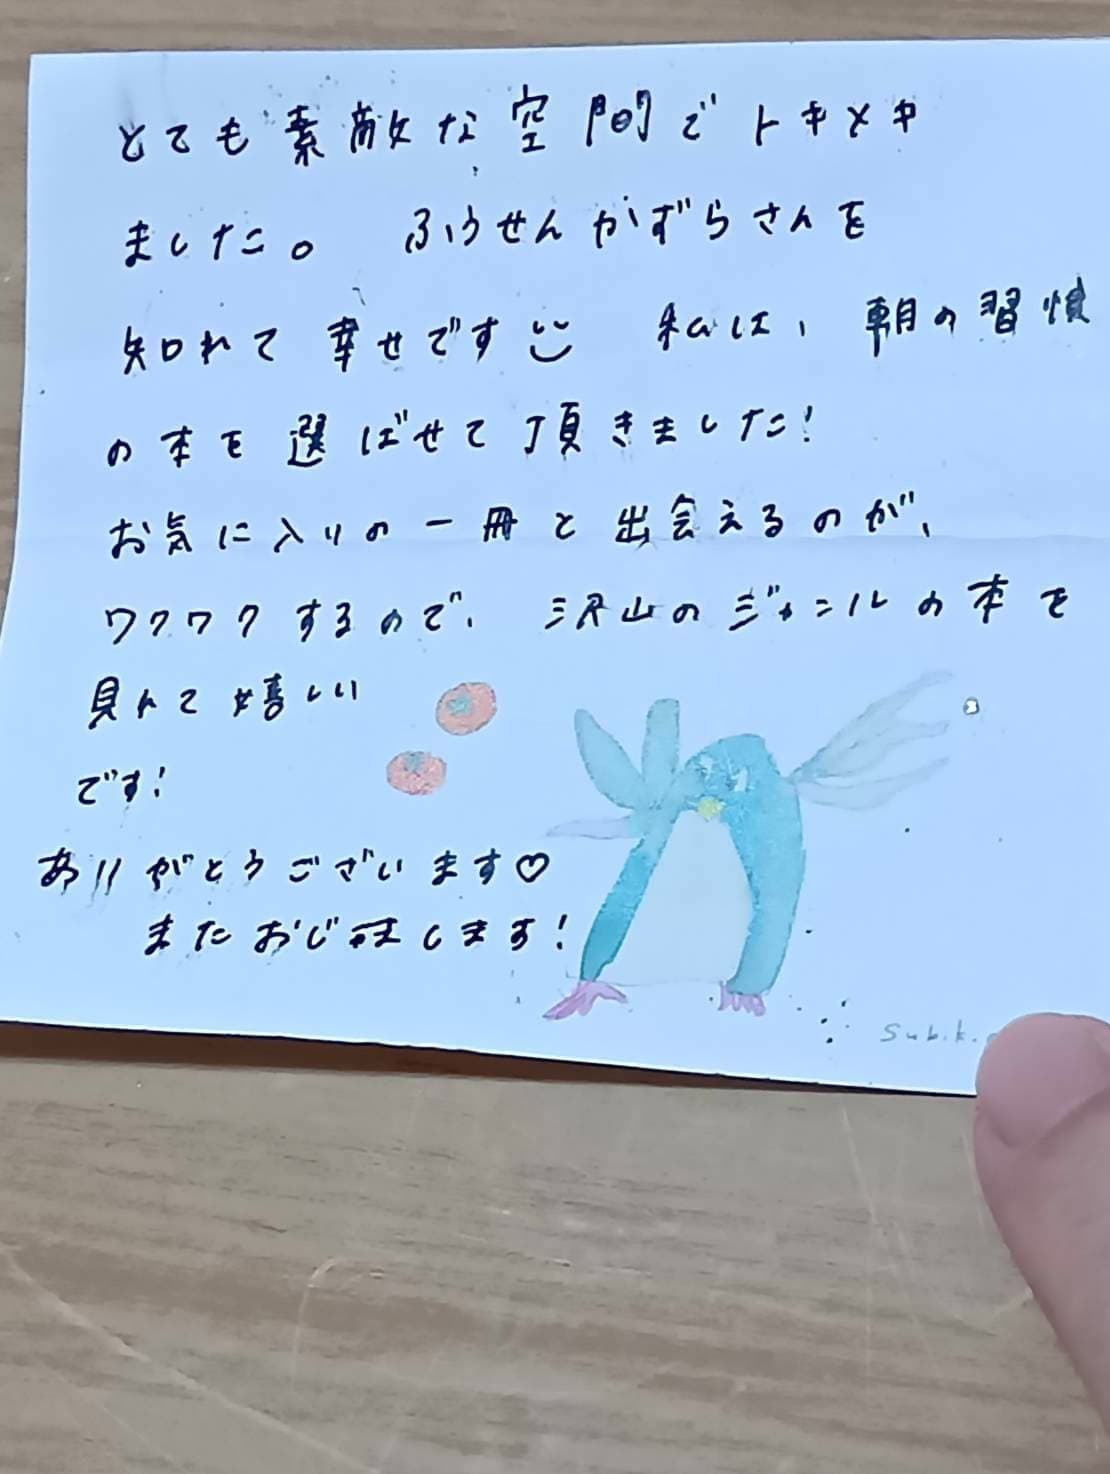 とても素敵な空間でトキメキ
ました。 ふうせんかずらさんを
知れて幸せです 私は、朝の習慣
の本を選ばせて頂きました!
お気に入りの一冊と出会えるのが、
ワクワクするので、沢山のジャンルの本を
見れて嬉しい
です!
ありがとうございます♡
またおじゃましします!
Sub.k.